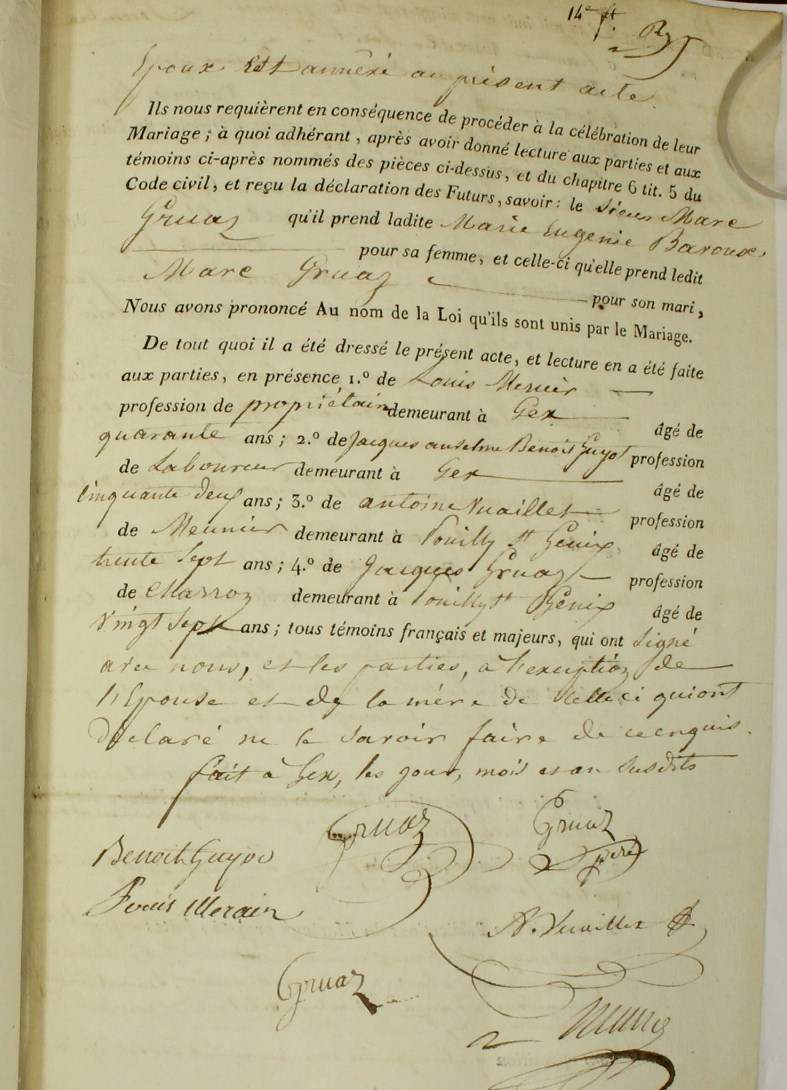 14e ft.
Epoux Est annéxé au présent acte.
Ils nous requièrent en conséquence de procéder à la célébration de leur
Mariage ; à quoi adhérant, après avoir donné lecture aux parties et aux
témoins ci-après nommés des pièces ci-dessus, et du chapitre 6 tit. 5 du
Code civil, et reçu la déclaration des Futurs, savoir : le sieur Marc
Gruaz qu'il prend ladite Marie Eugenie Baroux
pour sa femme, et celle-ci qu'elle prend ledit
Marc Gruaz pour son mari,
Nous avons prononcé Au nom de la Loi qu'ils sont unis par le Mariage.
De tout quoi il a été dressé le présent acte, et lecture en a été faite
aux parties, en présence 1.º de Louis
profession de propriétair demeurant à Gex âgé de
quarante ans ; 2.º de Jacques anselme Benoit Guyot profession
de Laboureur demeurant à Gex âgé de
Cinquante deux ans ; 3.º de antoine Vuaillet profession
de Meunier demeurant à Pouilly St Genix âgé de
trente Sept ans ; 4.º de Jacques Gruaz profession
de Charron demeurant à Pouilly St Genix âgé de
Vingt Sept ans ; tous témoins français et majeurs, qui ont Signé
avec nous, et les parties, à l'exception de
l'Epouse et de la mère de Celle ci qui ont
Déclaré ne le Savoir faire de ce enquis.
fait à Gex, les jour, mois et an susdits
Gruaz Gruaz
Benoit Guyot père
Louis
A. Vuaillet
Gruaz